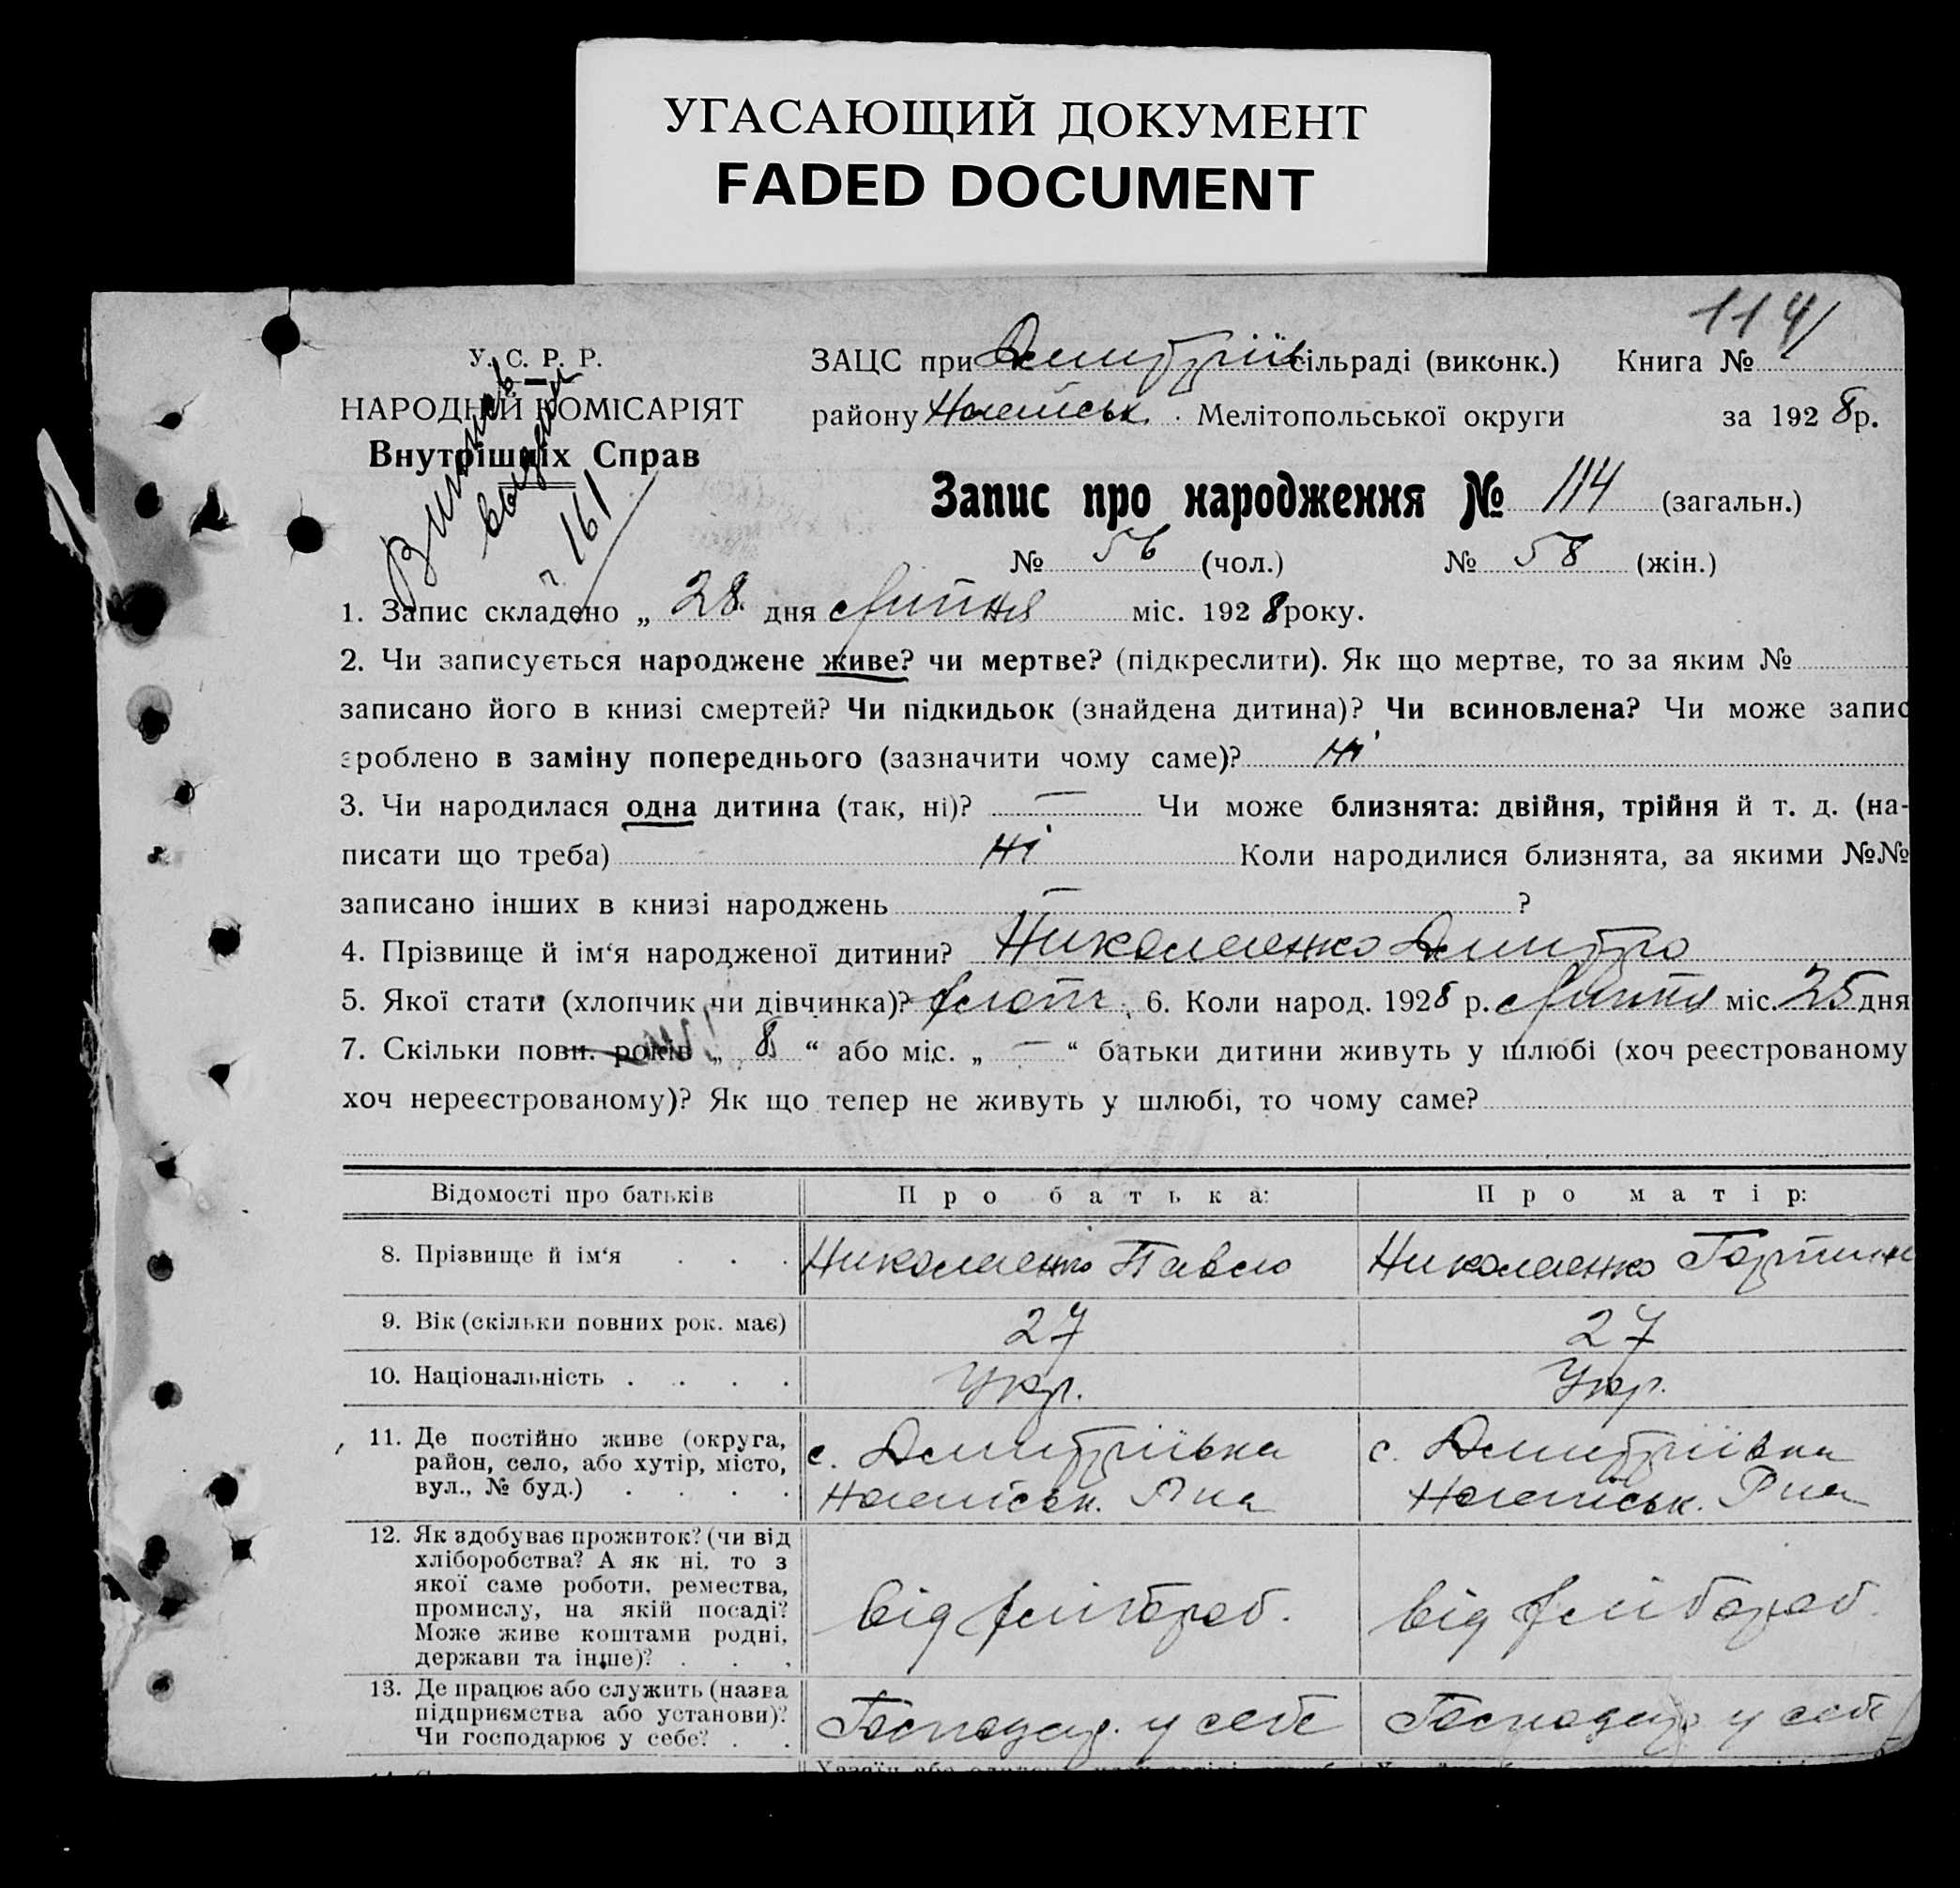 УГАСАЮЩИЙ ДОКУМЕНТ
FADED DOCUMENT
114
У. С. Р. Р.
НАРОДНІЙ КОМІСАРІЯТ
Внутрішніх Справ
161
ЗАЦС при Дмитріїв сільраді (виконк.) Книга №
району Ногайськ. Мелітопольської округи за 1928 р.
Запис про народження № 114 (загальн.)
№ 56 (чол.) № 58 (жін.)
1. Запис складено „ 28 " дня Липня міс. 1928 року.
2. Чи записується народжене живе? чи мертве? (підкреслити). Як що мертве, то за яким №
записано його в книзі смертей? Чи підкидьок (знайдена дитина)? Чи всиновлена? Чи може запис
зроблено в заміну попереднього (зазначити чому саме)? Ні
3. Чи народилася одна дитина (так, ні)? — Чи може близнята: двійня, трійня й т. д. (на-
писати що треба) Ні Коли народилися близнята, за якими №№
записано інших в книзі народжень — ?
4. Прізвище й ім‘я народженої дитини? Николаенко Дмитро
5. Якої стати (хлопчик чи дівчинка)? хлопч. 6. Коли народ. 1928 р. Липня міс. 25 дня
7. Скільки повн. років „ 8 “ або міс. „ — “ батьки дитини живуть у шлюбі (хоч реєстрованому
хоч нереєстрованому)? Як що тепер не живуть у шлюбі, то чому саме?
Відомості про батьків Про батька: Про матір:
8. Прізвище й ім‘я . . . Николаенко Павло Николаенко Горпин
9. Вік (скільки повних рок. має) 27 27
10. Національність . . . . Укр. Укр.
11. Де постійно живе (округа,
район, село, або хутір, місто,
вул., № буд.) . . . .
с. Дмитріївка
Ногайськ. Р на
с. Дмитріївка
Ногайськ. Р на
12. Як здобуває прожиток? (чи від
хліборобства? А як ні, то з
якої саме роботи, ремества,
промислу, на якій посаді?
Може живе коштами родні,
держави та інше)? . . .
від хлібороб. від хлібороб.
13. Де працює або служить (назва
підприємства або установи)?
Чи господарює у себе? . .
Господар. у себе Господар. у себе